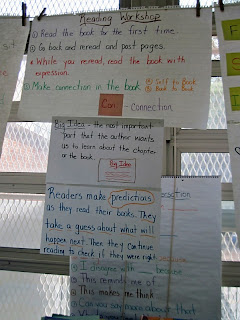 Reading Workshop
① Read the book for the first time.
② Go back and reread and post pages.
* While you reread, read the book with expression.
③ Make connection in the book
Self to Book
Book to Book
Con - Connection
Big Idea - the most important
part that the author wants
us to learn about the chapter
or the book.
Big Idea
Readers make predictions
as they read their books. They
take a guess about what will
happen next. Then they continue
reading to check if they were right
I disagree with because
This reminds me of
This makes me think
Can you say more about that